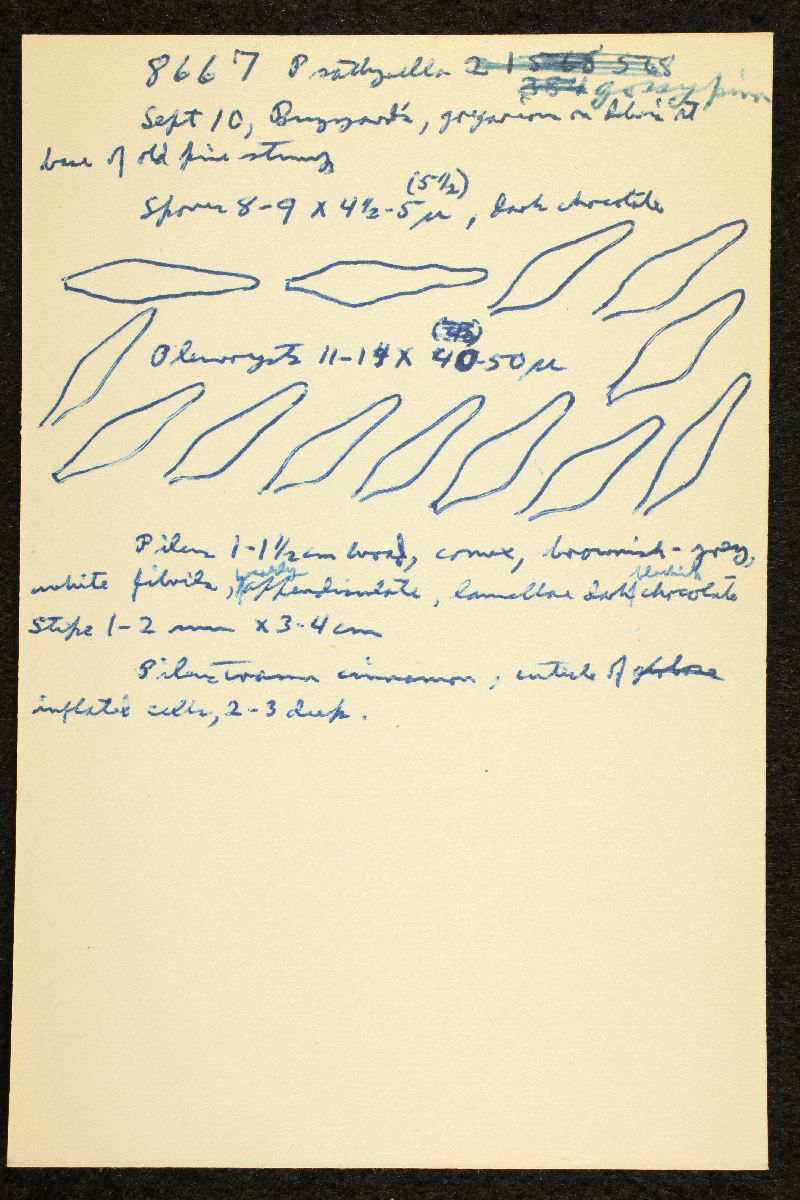 8667 Psathyrella 2 1 5 68 568
384 gossypina
Sept 10, Buzzard's, gregarious on debris at
base of old pine stump
(5½)
Spores 8-9 x 4½-5 µ, dark chocolate
Pleurocysts 11-14 x 40-50 µ
Pileus 1-1½ cm broad, convex, brownish-grey,
white fibrils, weakly appendiculate, lamellae dark blackish chocolate
Stipe 1-2 mm x 3-4 cm
Pileus trama cinnamon; cuticle of globose
inflated cells, 2-3 deep.